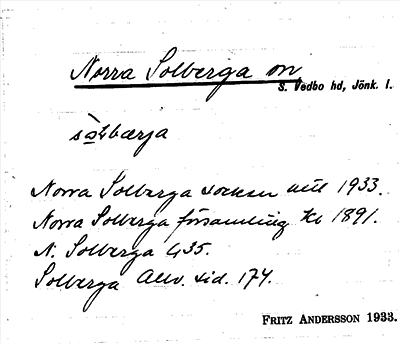 Norra Solberga sn
S. Vedbo hd, Jönk. l.
sò̀lbærja
Norra Solberga socken mtl 1933.
Norra Solberga församling Kb 1891.
N. Solberga 435.
Solberga Allv. sid. 174.
FRITZ ANDERSSON 1933.